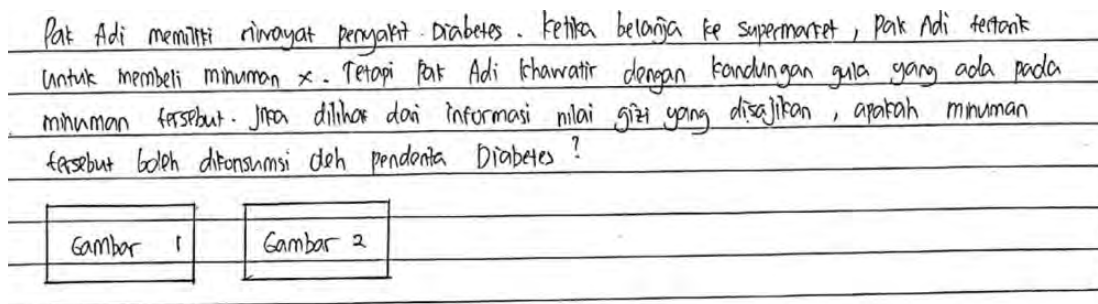 Pak Adi memiliki riwayat penyakit Diabetes. Ketika belanja ke supermarket, Pak Adi tertarik
untuk membeli minuman x. Tetapi Pak Adi khawatir dengan kandungan gula yang ada pada
minuman tersebut. Jika dilihat dari informasi nilai gizi yang disajikan, apakah minuman
tersebut boleh dikonsumsi oleh penderita Diabetes?
Gambar 1 Gambar 2